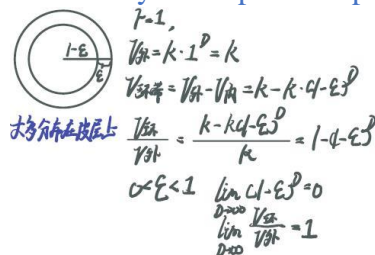 r=1,
1-ε
ε
V外=k·1^D=k
V环带=V外-V内=k-k·(1-ε)^D
大多分布在皮层上
V环/V外=(k-k(1-ε)^D)/k=1-(1-ε)^D
0<ε<1 lim D→∞ (1-ε)^D=0
lim D→∞ V环/V外=1